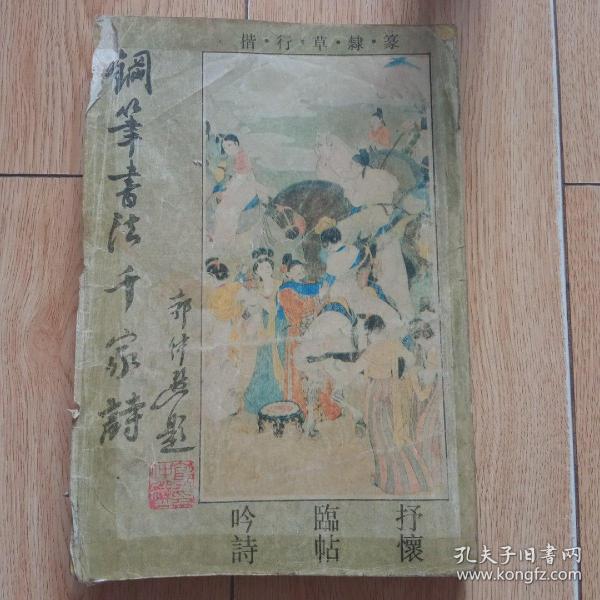 楷·行·草·隸·篆
鋼筆書法千家詩
郭仲選題
吟詩
臨帖
抒懷
孔夫子旧书网
www.kongfz.com